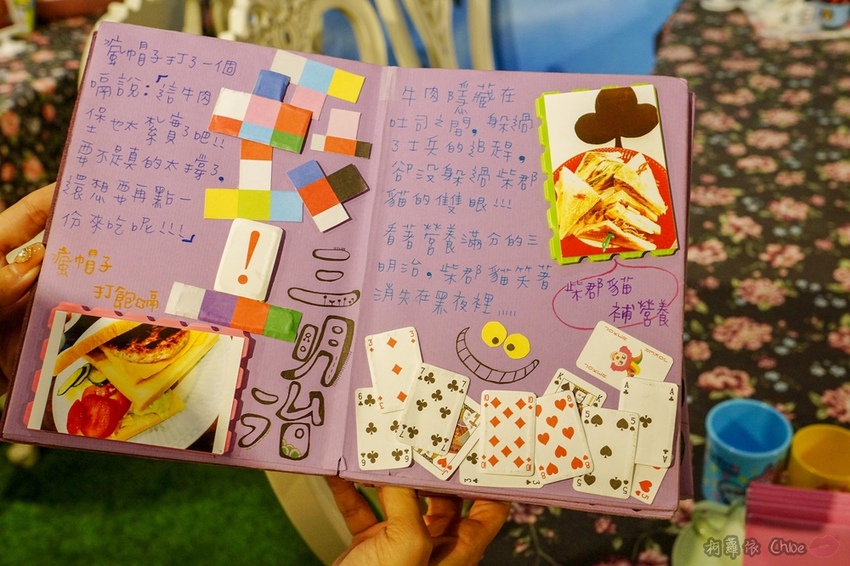 瘋帽子打了一個
嗝說:「這牛肉
堡也太紮實了吧!!
要不是真的太撐了,
還想要再點一
份來吃呢!!!」
瘋帽子
打飽嗝
三明治
牛肉隱藏在
吐司之間,躲過
了士兵的追趕,
卻沒躲過柴郡
貓的雙眼!!!
看著營養滿分的三
明治,柴郡貓笑著
消失在黑夜裡.....
柴郡貓
補營養
柯蘿依 Chloe